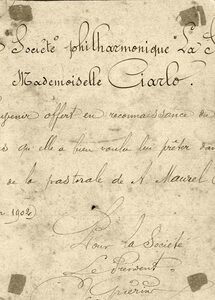 Société philharmonique "La
Mademoiselle Ciarlo.
offert en reconnaissance du
qu'elle a bien voulu lui prêter dans
de la pastorale de A Maurel
1902
Pour la Société
Le Président